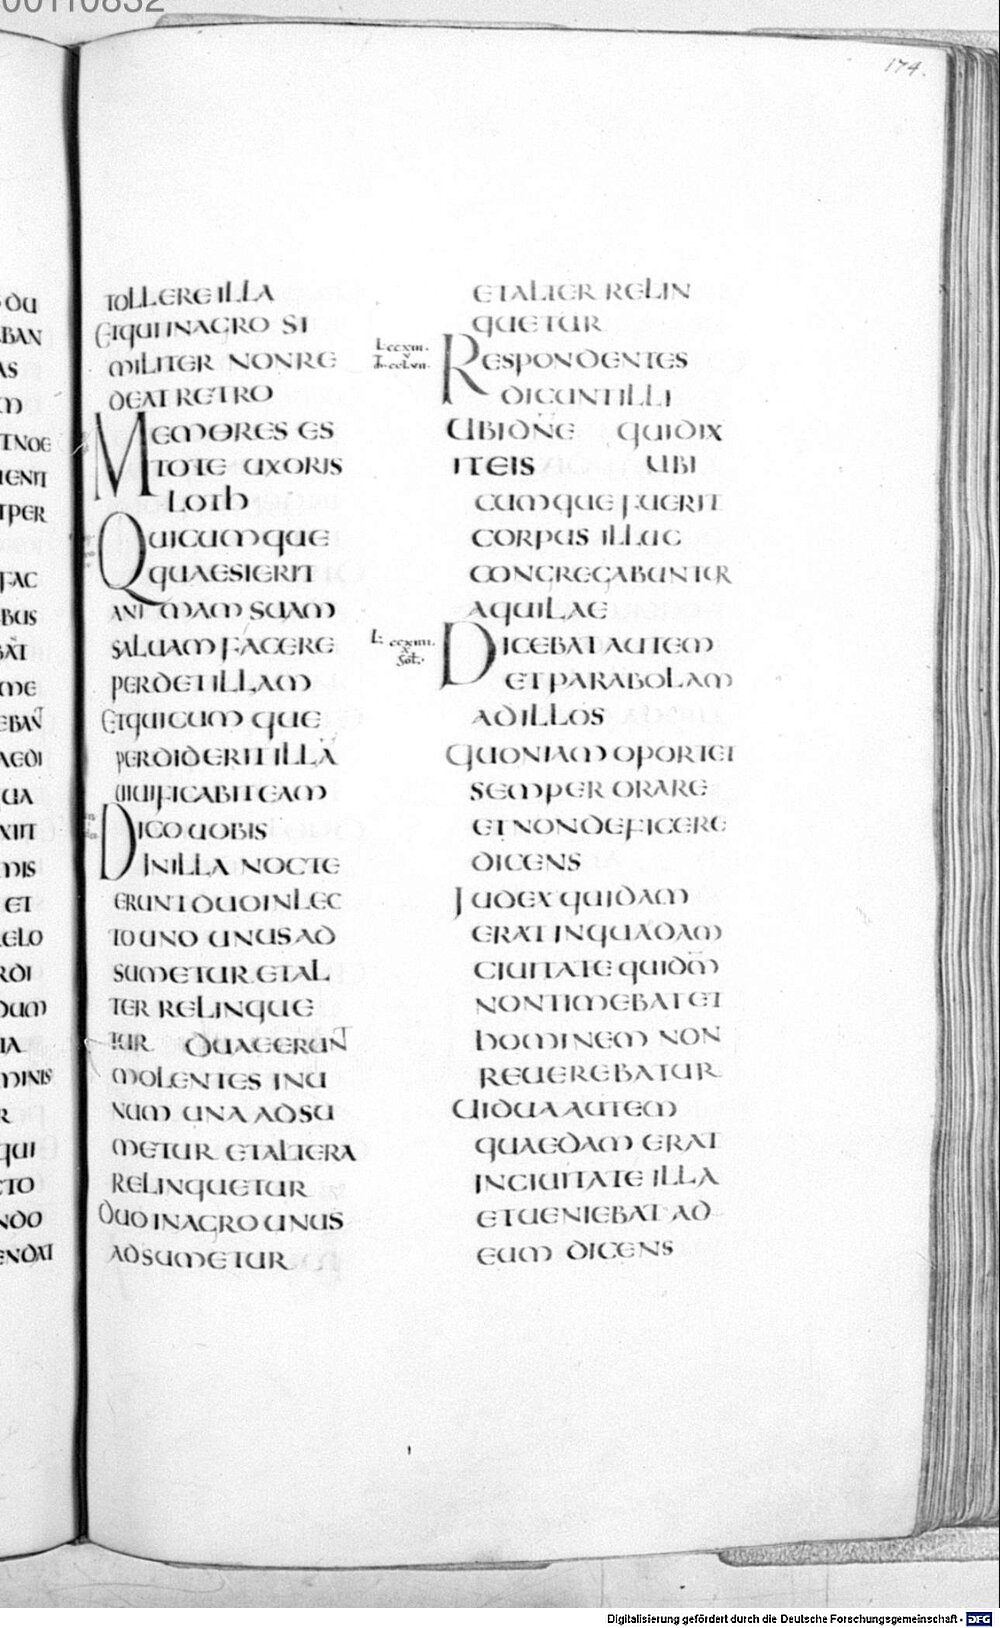 00110832
174.
DU
BAN
AS
M
TNOE
IENTI
TPER
FAC
BUS
BAT
ME
EBANT
AEDI
UA
XIIT
MIS
ET
ELO
RDI
DUM
IA
MINIS
R
QUI
CTO
NDO
ENDAT
TOLLERE ILLA
ET QUI IN AGRO SI
MILITER NON RE
DEAT RETRO
MEMORES ES
TOTE UXORIS
LOTH
QUICUMQUE
QUAESIERIT
ANIMAM SUAM
SALUAM FACERE
PERDET ILLAM
ET QUICUMQUE
PERDIDERIT ILLĀ
UIUIFICABIT EAM
DICO UOBIS
IN ILLA NOCTE
ERUNT DUO IN LEC
TO UNO UNUS AD
SUMETUR ET AL
TER RELINQUE
TUR DUAE ERUNT
MOLENTES IN U
NUM UNA ADSU
METUR ET ALTERA
RELINQUETUR
DUO IN AGRO UNUS
ADSUMETUR
ET ALTER RELIN
QUETUR
L. ccxiii.
RESPONDENTES
DICUNT ILLI
UBI DN̄E QUI DIX
IT EIS UBI
CUMQUE FUERIT
CORPUS ILLUC
CONGREGABUNTUR
AQUILAE
L. ccxiiii.
X
Sol.
DICEBAT AUTEM
ET PARABOLAM
AD ILLOS
QUONIAM OPORTET
SEMPER ORARE
ET NON DEFICERE
DICENS
JUDEX QUIDAM
ERAT IN QUADAM
CIUITATE QUI DM̄
NON TIMEBAT ET
HOMINEM NON
REUEREBATUR
UIDUA AUTEM
QUAEDAM ERAT
IN CIUITATE ILLA
ET UENIEBAT AD
EUM DICENS
Digitalisierung gefördert durch die Deutsche Forschungsgemeinschaft - DFG